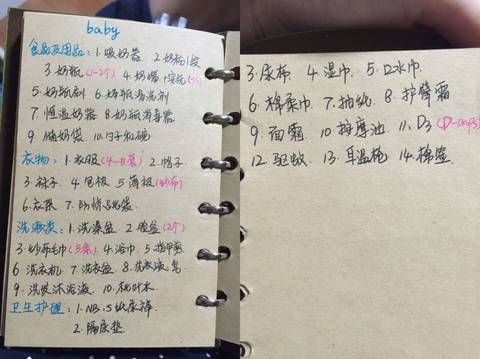 baby
食品及用品: 1. 吸奶器 2. 奶粉1段
3. 奶瓶(1-2个) 4. 奶嘴
5. 奶瓶刷 6. 奶瓶清洗剂
7. 恒温奶器 8. 奶瓶消毒器
9. 储奶袋 10.
衣物: 1. 衣服(4-8套) 2. 帽子
3. 袜子 4. 包被 5. 薄被(纱布)
6. 衣架 7. 防惊跳袋
洗漱类: 1. 洗澡盆 2. 脸盆(2个)
3. 纱布毛巾(5条) 4. 浴巾 5. 指甲剪
6. 洗衣机 7. 洗衣盆 8. 洗衣液/皂
9. 洗发沐浴液 10. 桃叶水
卫生护理: 1. NB.S纸尿裤
2. 隔尿垫
3. 尿布 4. 湿巾 5. 口水巾
6. 棉柔巾 7. 抽纸 8. 护臀霜
9. 面霜 10. 按摩油 11. D3 (D-drops)
12. 驱蚊 13. 耳温枪 14. 棉签